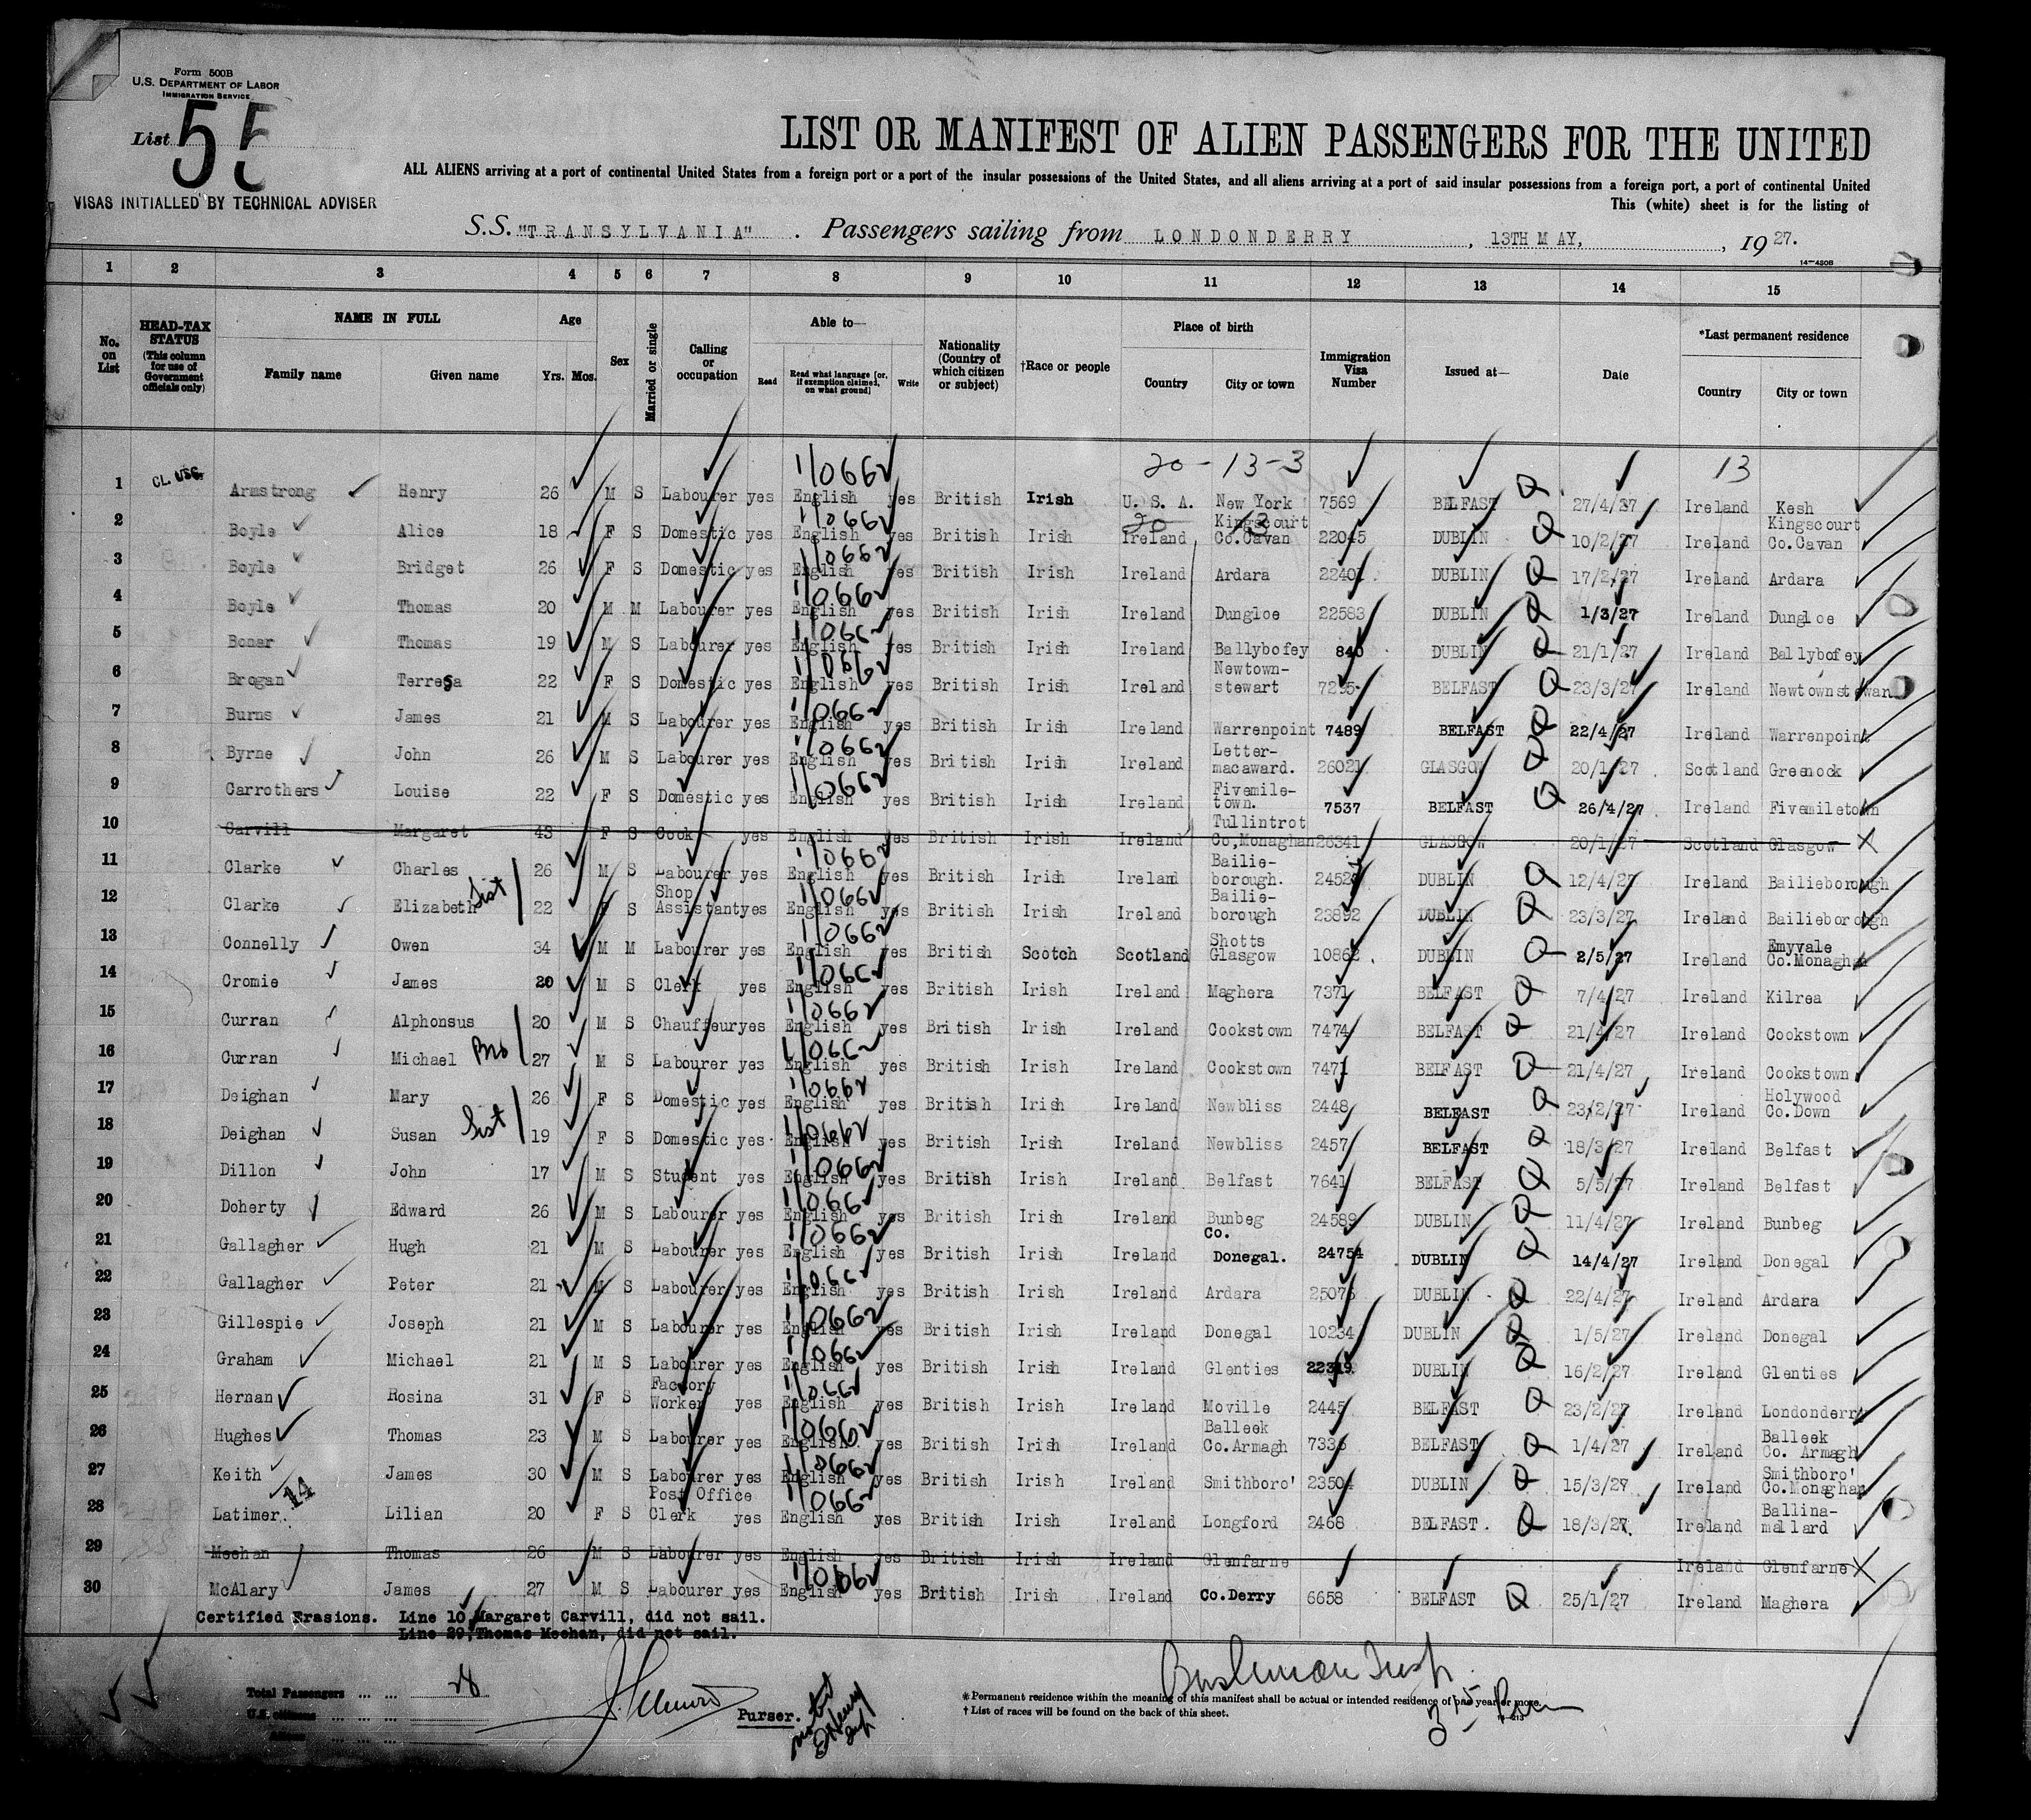 Form 500B
U.S. DEPARTMENT OF LABOR
IMMIGRATION SERVICE
List 55
VISAS INITIALLED BY TECHNICAL ADVISER
LIST OR MANIFEST OF ALIEN PASSENGERS FOR THE UNITED
ALL ALIENS arriving at a port of continental United States from a foreign port or a port of the insular possessions of the United States, and all aliens arriving at a port of said insular possessions from a foreign port, a port of continental United
This (white) sheet is for the listing of
S.S. "TRANSYLVANIA" . Passengers sailing from LONDONDERRY, 13TH MAY, 1927.
14—430B
1 2 3 4 5 6 7 8 9 10 11 12 13 14 15
No. on List
HEAD-TAX STATUS (This column for use of Government officials only)
NAME IN FULL
Family name Given name
Age
Yrs. Mos.
Sex
Married or single
Calling or occupation
Able to—
Read
Read what language [or, if exemption claimed, on what ground]
Write
Nationality (Country of which citizen or subject)
†Race or people
Place of birth
Country City or town
Immigration Visa Number
Issued at—
Date
*Last permanent residence
Country City or town
20-13-3 13
1 CL. USC. Armstrong Henry 26 M S Labourer yes 1/0662 English yes British Irish U. S. A. New York 7569 BELFAST 27/4/27 Ireland Kesh
20 13
2 Boyle Alice 18 F S Domestic yes 1/0662 English yes British Irish Ireland Kingscourt Co.Cavan 22045 DUBLIN 10/2/27 Ireland Kingscourt Co.Cavan
3 Boyle Bridget 26 F S Domestic yes 1/0662 English yes British Irish Ireland Ardara 22401 DUBLIN 17/2/27 Ireland Ardara
4 Boyle Thomas 20 M M Labourer yes 1/0662 English yes British Irish Ireland Dungloe 22583 DUBLIN 1/3/27 Ireland Dungloe
5 Bonar Thomas 19 M S Labourer yes 1/0662 English yes British Irish Ireland Ballybofey 840 DUBLIN 21/1/27 Ireland Ballybofey
6 Brogan Terresa 22 F S Domestic yes 1/0662 English yes British Irish Ireland Newtown-stewart 7295 BELFAST 23/3/27 Ireland Newtownstewart
7 Burns James 21 M S Labourer yes 1/0662 English yes British Irish Ireland Warrenpoint 7489 BELFAST 22/4/27 Ireland Warrenpoint
8 Byrne John 26 M S Labourer yes 1/0662 English yes British Irish Ireland Letter-macaward. 26021 GLASGOW 20/1/27 Scotland Greenock
9 Carrothers Louise 22 F S Domestic yes 1/0662 English yes British Irish Ireland Fivemile-town. 7537 BELFAST 26/4/27 Ireland Fivemiletown
10 Carvill Margaret 43 F S Cook yes English yes British Irish Ireland Tullintrot Co,Monaghan 26341 GLASGOW 20/1/27 Scotland Glasgow X
11 Clarke Charles 26 M S Labourer yes 1/0662 English yes British Irish Ireland Bailie-borough. 2452 DUBLIN 12/4/27 Ireland Bailieborough
12 Clarke Elizabeth Sist 22 F S Shop Assistant yes 1/0662 English yes British Irish Ireland Bailie-borough 23892 DUBLIN 23/3/27 Ireland Bailieborough
13 Connelly Owen 34 M M Labourer yes 1/0662 English yes British Scotch Scotland Shotts Glasgow 10862 DUBLIN 2/5/27 Ireland Emyvale Co.Monaghan
14 Cromie James 20 M S Clerk yes 1/0662 English yes British Irish Ireland Maghera 7371 BELFAST 7/4/27 Ireland Kilrea
15 Curran Alphonsus 20 M S Chauffeur yes 1/0662 English yes British Irish Ireland Cookstown 7474 BELFAST 21/4/27 Ireland Cookstown
16 Curran Michael Bro 27 M S Labourer yes 1/0662 English yes British Irish Ireland Cookstown 7471 BELFAST 21/4/27 Ireland Cookstown
17 Deighan Mary 26 F S Domestic yes 1/0662 English yes British Irish Ireland Newbliss 2448 BELFAST 23/2/27 Ireland Holywood Co.Down
18 Deighan Susan Sist 19 F S Domestic yes 1/0662 English yes British Irish Ireland Newbliss 2457 BELFAST 18/3/27 Ireland Belfast
19 Dillon John 17 M S Student yes 1/0662 English yes British Irish Ireland Belfast 7641 BELFAST 5/5/27 Ireland Belfast
20 Doherty Edward 26 M S Labourer yes 1/0662 English yes British Irish Ireland Bunbeg 24589 DUBLIN 11/4/27 Ireland Bunbeg
21 Gallagher Hugh 21 M S Labourer yes 1/0662 English yes British Irish Ireland Co. Donegal. 24754 DUBLIN 14/4/27 Ireland Donegal
22 Gallagher Peter 21 M S Labourer yes 1/0662 English yes British Irish Ireland Ardara 25075 DUBLIN 22/4/27 Ireland Ardara
23 Gillespie Joseph 21 M S Labourer yes 1/0662 English yes British Irish Ireland Donegal 10234 DUBLIN 1/5/27 Ireland Donegal
24 Graham Michael 21 M S Labourer yes 1/0662 English yes British Irish Ireland Glenties 22319 DUBLIN 16/2/27 Ireland Glenties
25 Hernan Rosina 31 F S Factory Worker yes 1/0662 English yes British Irish Ireland Moville 2445 BELFAST 23/2/27 Ireland Londonderry
26 Hughes Thomas 23 M S Labourer yes 1/0662 English. yes British Irish Ireland Balleek Co.Armagh 7336 BELFAST 1/4/27 Ireland Balleek Co. Armagh
27 Keith James 30 M S Labourer yes 1/0662 English yes British Irish Ireland Smithboro' 23504 DUBLIN 15/3/27 Ireland Smithboro' Co.Monaghan
14
28 Latimer. Lilian 20 F S Post Office Clerk yes 1/0662 English yes British Irish Ireland Longford 2468 BELFAST. 18/3/27. Ireland Ballina-mallard
29 Meehan Thomas 26 M S Labourer yes English yes British Irish Ireland Glenfarne Ireland Glenfarne X
30 McAlary James 27 M S Labourer yes 1/0662 English yes British Irish Ireland Co.Derry 6658 BELFAST 25/1/27 Ireland Maghera
Certified Erasions. Line 10, Margaret Carvill, did not sail.
Line 29, Thomas Meehan, did not sail.
Total Passengers ... ... 28
U.S. citizens ... ... ...
Aliens ... ... ...
Purser.
* Permanent residence within the meaning of this manifest shall be actual or intended residence of one year or more.
† List of races will be found on the back of this sheet.